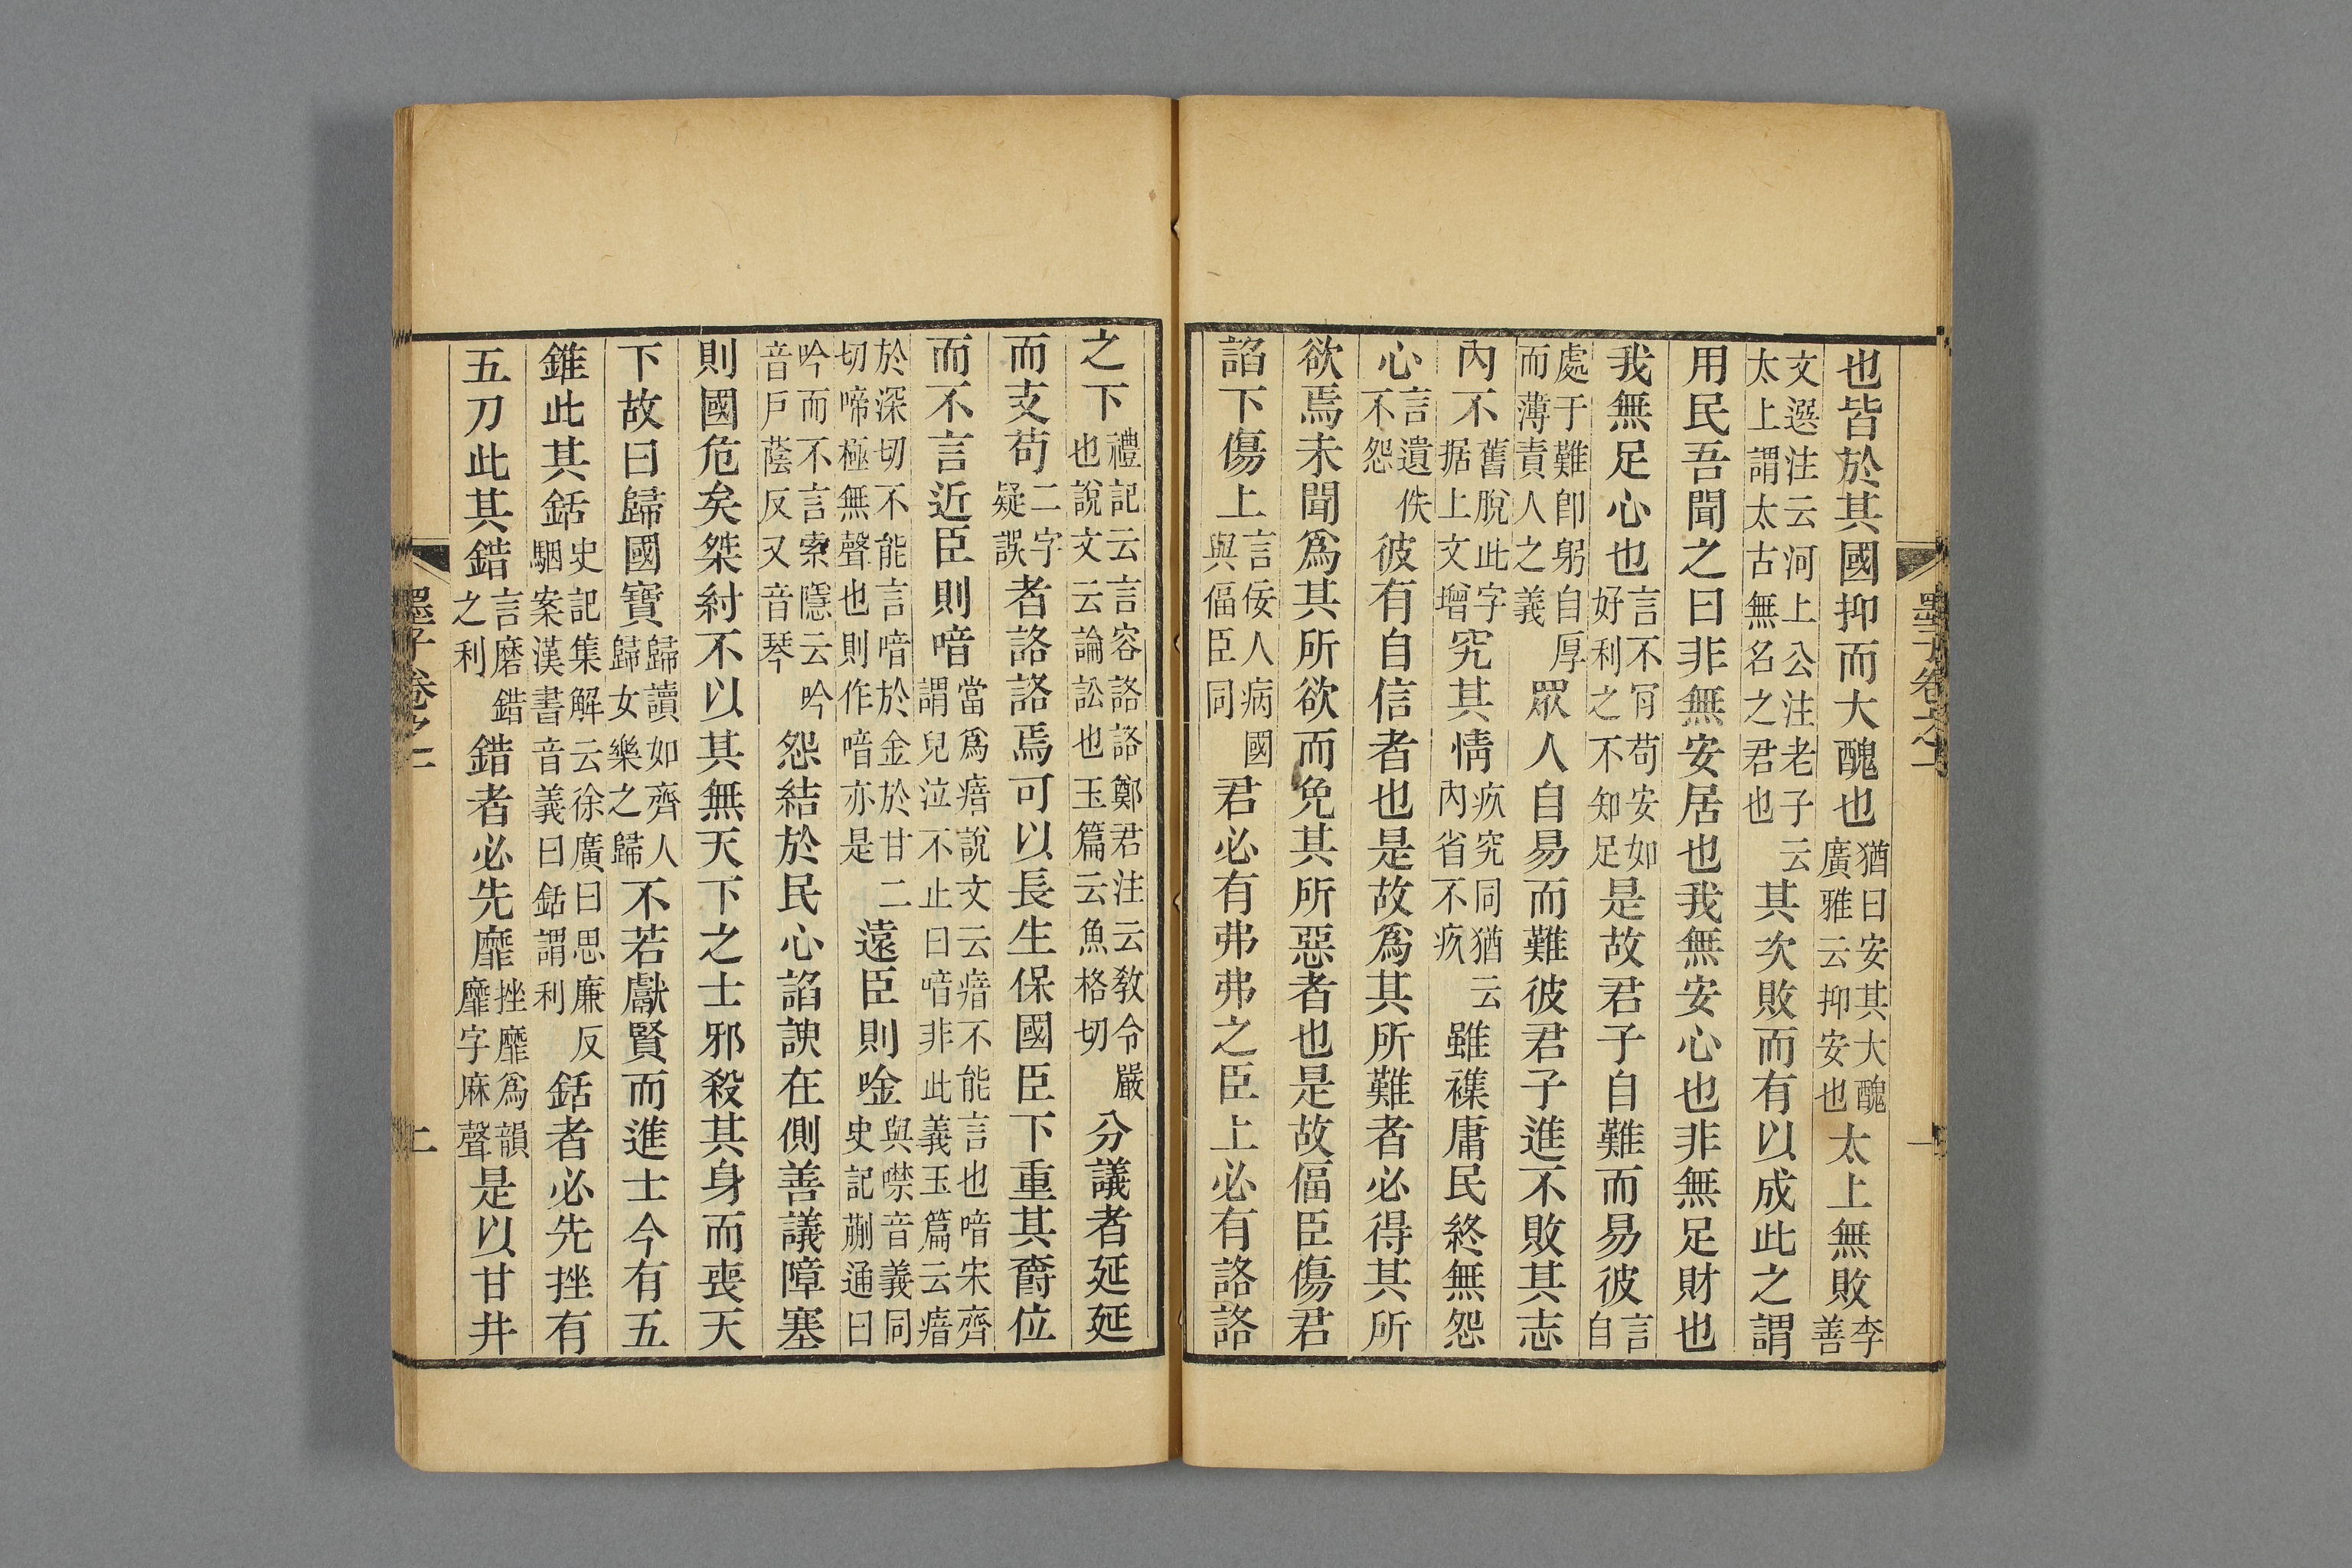 墨子卷之一
一
也皆於其國抑而大醜也猶曰安其大醜廣雅云抑安也太上無敗李善
文選注云河上公注老子云太上謂太古無名之君也其次敗而有以成此之謂
用民吾聞之曰非無安居也我無安心也非無足財也
我無足心也言不肎苟安如好利之不知足是故君子自難而易彼言自
處于難卽躬自厚而薄責人之義眾人自易而難彼君子進不敗其志
內不舊脫此字据上文增究其情疚究同猶云內省不疚雖襍庸民終無怨
心言遺佚不怨彼有自信者也是故爲其所難者必得其所
欲焉未聞爲其所欲而免其所惡者也是故偪臣傷君
諂下傷上言佞人病國與偪臣同君必有弗弗之臣上必有詻詻
之下禮記云言容詻詻鄭君注云敎令嚴也說文云論訟也玉篇云魚格切分議者延延
而支苟二字疑誤者詻詻焉可以長生保國臣下重其爵位
而不言近臣則喑當爲瘖說文云瘖不能言也喑宋齊謂兒泣不止曰喑非此義玉篇云瘖
於深切不能言喑於金於甘二切啼極無聲也則作喑亦是遠臣則唫與噤音義同史記蒯通曰
吟而不言索隱云吟音戶蔭反又音琴怨結於民心諂諛在側善議障塞
則國危矣桀紂不以其無天下之士邪殺其身而喪天
下故曰歸國寶歸讀如齊人歸女樂之歸不若獻賢而進士今有五
錐此其銛史記集解云徐廣曰思廉反駰案漢書音義曰銛謂利銛者必先挫有
五刀此其錯言磨錯之利錯者必先靡挫靡爲韻靡字麻聲是以甘井
墨子卷之一